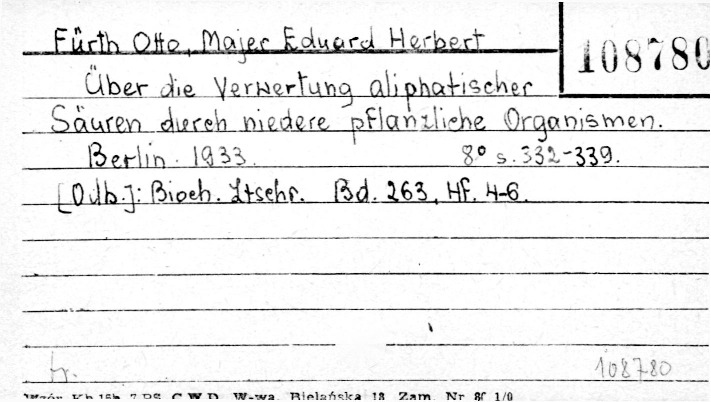 Fürth Otto, Majer Eduard Herbert
108780
Über die Verwertung aliphatischer
Säuren durch niedere pflanzliche Organismen.
Berlin. 1933. 8° s. 332-339.
[Odb.]: Bioch. Ztschr. Bd. 263, Hf. 4-6.
fr. 108780
C.W.D. W-wa, Bielańska 18 Zam. Nr